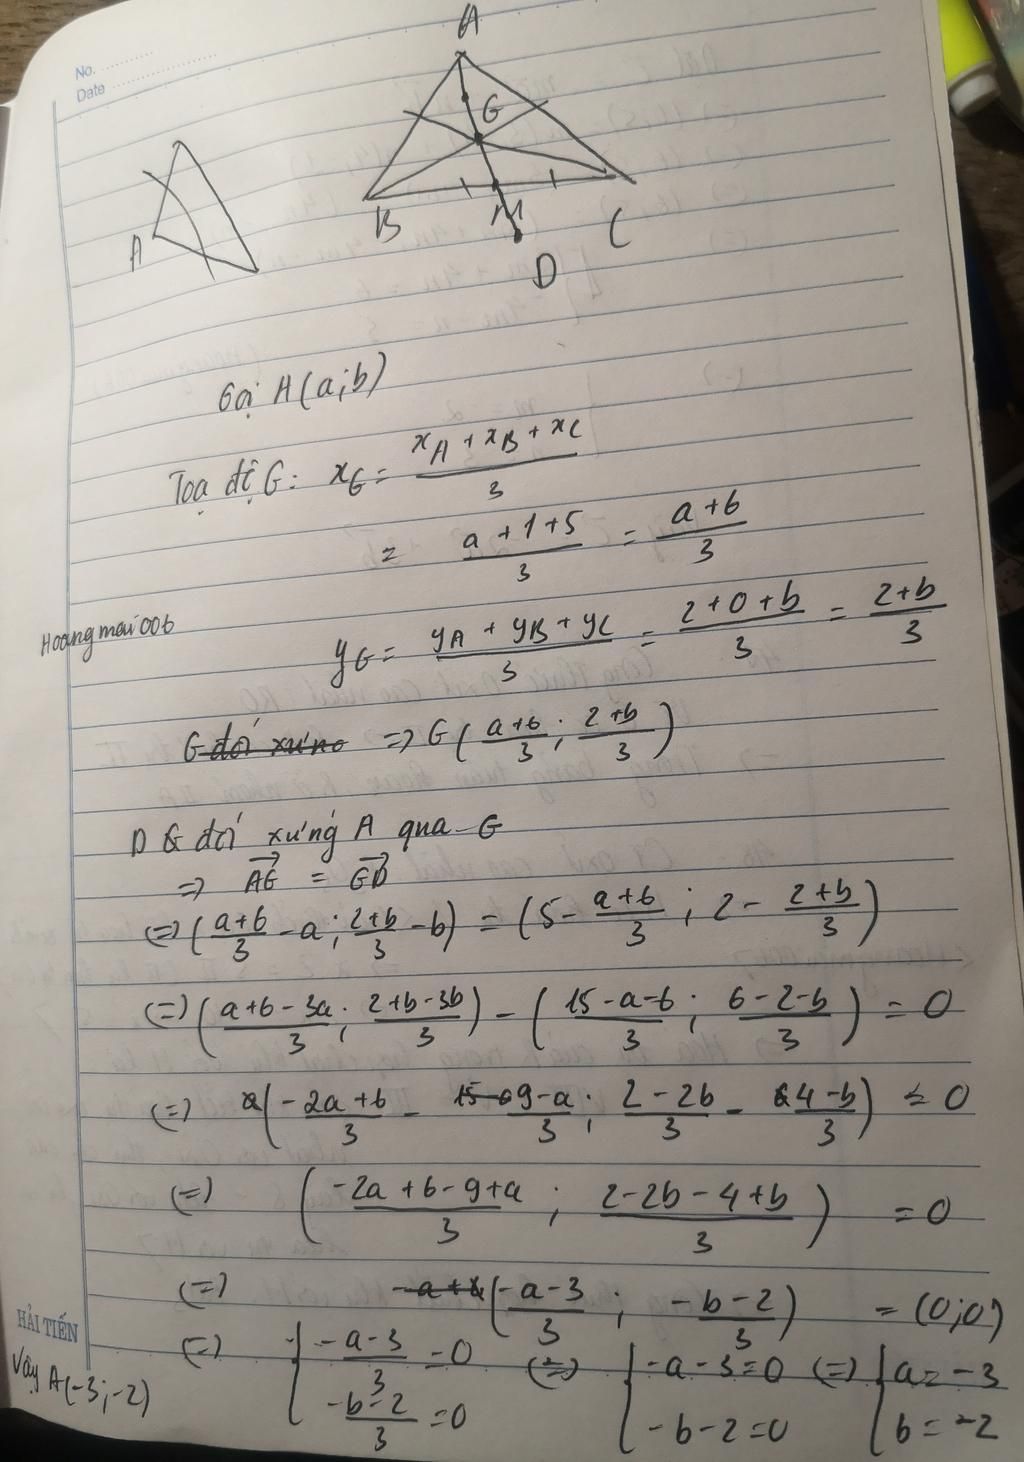 No. ............
Date ............
A
G
B
M
C
D
A
Gọi A(a;b)
Toạ độ G: xG = (xA + xB + xC)/3
= (a + 1 + 5)/3 = (a + 6)/3
Hoangmai006
yG = (yA + yB + yC)/3 = (2 + 0 + b)/3 = (2 + b)/3
G đối xứng => G((a+6)/3 ; (2+b)/3)
D & đối xứng A qua G
=> AG = GD
(=) ((a+6)/3 - a ; (2+b)/3 - b) = (5 - (a+6)/3 ; 2 - (2+b)/3)
(=) ((a+6-3a)/3 ; (2+b-3b)/3) - ((15-a-6)/3 ; (6-2-b)/3) = 0
(=) ((-2a+6)/3 - (9-a)/3 ; (2-2b)/3 - (4-b)/3) = 0
(=) ((-2a+6-9+a)/3 ; (2-2b-4+b)/3) = 0
(=) ((-a-3)/3 ; (-b-2)/3) = (0;0)
(=) { (-a-3)/3 = 0 (=) { -a-3=0 (=) { a = -3
(-b-2)/3 = 0 -b-2=0 b = -2
HẢI TIẾN
Vậy A(-3;-2)